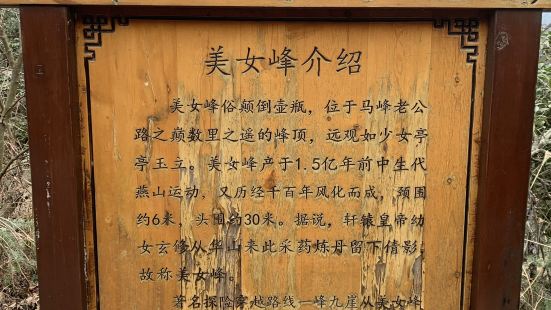 美女峰介绍
美女峰俗颠倒壶瓶，位于马峰老公
路之巅数里之遥的峰顶，远观如少女亭
亭玉立。美女峰产于1.5亿年前中生代
燕山运动，又历经千百年风化而成，颈围
约6米，头围约30米。据说，轩辕皇帝幼
女玄修从华山来此采药炼丹留下倩影，
故称美女峰。
著名探险穿越路线一峰九崖从美女峰